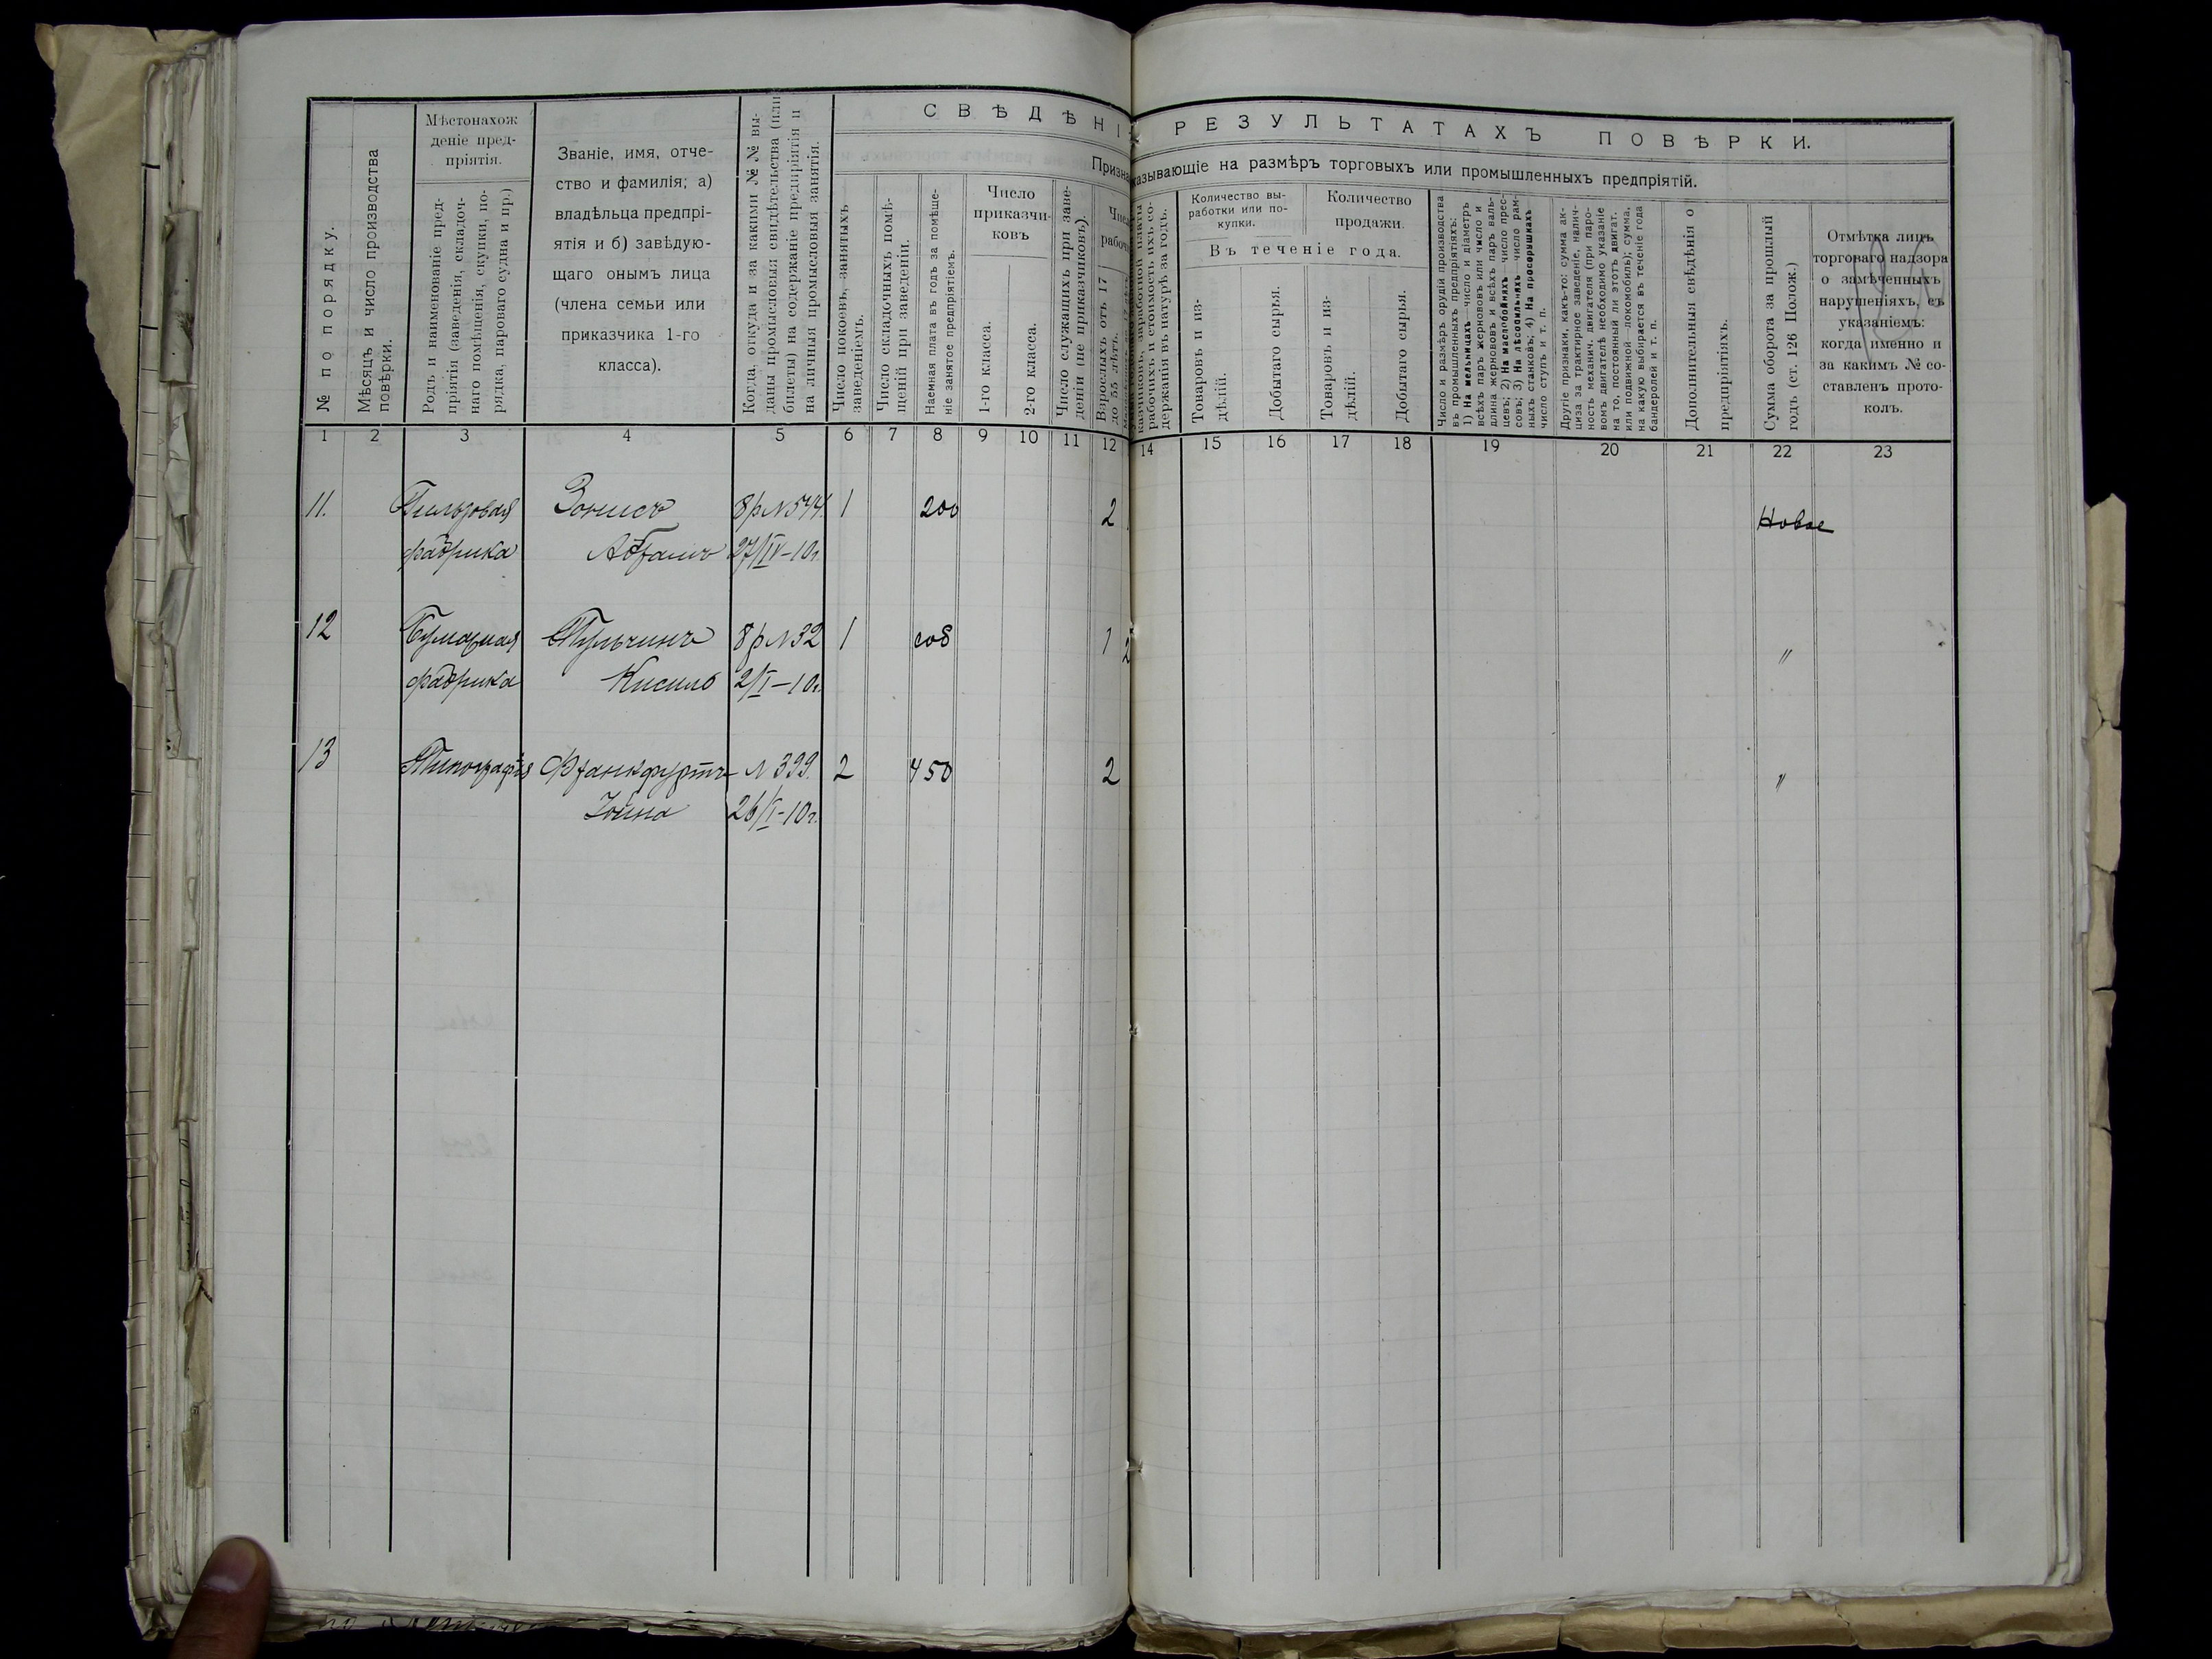 СВѢДѢНІ РЕЗУЛЬТАТАХЪ ПОВѢРКИ.
Призна казывающіе на размѣръ торговыхъ или промышленныхъ предпріятій.
№ по порядку.
Мѣсяцъ и число производства
повѣрки.
Мѣстонахож
деніе пред-
пріятія.
Родъ и наименованіе пред-
пріятія (заведенія, складоч-
наго помѣщенія, скупки, по-
рядка, пароваго судна и пр.)
Званіе, имя, отче-
ство и фамилія; а)
владѣльца предпрі-
ятія и б) завѣдую-
щаго онымъ лица
(члена семьи или
приказчика 1-го
класса).
Когда, откуда и за какими №№ вы-
даны промысловыя свидѣтельства (или
билеты) на содержаніе предпріятія и
на личныя промысловыя занятія.
Число покоевъ, занятыхъ
заведеніемъ.
Число складочныхъ помѣ-
щеній при заведеніи.
Наемная плата въ годъ за помѣще-
ніе занятое предпріятіемъ.
Число
приказчи-
ковъ
1-го класса.
2-го класса.
Число служащихъ при заве-
деніи (не приказчиковъ).
Взрослыхъ отъ 17
до 55 лѣтъ.
казчиковъ, заработной платы
рабочихъ и стоимость ихъ со-
держанія въ натурѣ за годъ.
Количество вы-
работки или по-
купки.
Количество
продажи.
Въ теченіе года.
Товаровъ и из-
дѣлій.
Добытаго сырья.
Товаровъ и из-
дѣлій.
Добытаго сырья.
Число и размѣръ орудій производства
въ промышленныхъ предпріятіяхъ:
1) На мельницахъ—число и діаметръ
всѣхъ паръ жерновов или число и
длина жерновов и всѣхъ паръ валь-
цевъ; 2) На маслобойняхъ число прес-
совъ; 3) На лѣсопильняхъ число рам-
ныхъ станковъ; 4) На просорушкахъ
число ступъ и т. п.
Другіе признаки, какъ-то: сумма ак-
циза за трактирное заведеніе, налич-
ность механич. двигателя (при паро-
вомъ двигателѣ необходимо указаніе
на то, постоянный ли этотъ двигат.
или подвижной—локомобиль); сумма,
на какую выбирается въ теченіе года
бандеролей и т. п.
Дополнительныя свѣдѣнія о
предпріятіяхъ.
Сумма оборота за прошлый
годъ (ст. 126 Полож.)
Отмѣтка лицъ
торговаго надзора
о замѣченныхъ
нарушеніяхъ, съ
указаніемъ:
когда именно и
за какимъ № со-
ставленъ прото-
колъ.
1 2 3 4 5 6 7 8 9 10 11 12 14 15 16 17 18 19 20 21 22 23
11. Гильзовая Зонисъ 8р N 544. 1 200 2 Новое
фабрика Абрамъ 27/IV-10г.
12 Бумажная Тульчинъ 8р N 32 1 соб 1 2 "
фабрика Кисиль 2/I-10г.
13 Типографія Франкфуртъ N 399. 2 450 2 "
Іойна 26/I-10г.